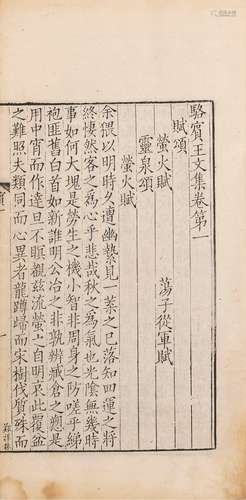 駱賓王文集卷第一
賦頌
螢火賦
蕩子從軍賦
靈泉頌
螢火賦
余猥以明時久遭幽縶見一葉之已落知四運之將
終悽然客之為心乎悲哉秋之為氣也光陰無幾時
事如何大塊是勞生之機小智非周身之防嗟乎綈
袍匪舊白首如新誰明公冶之非孰辨臧倉之愬是
用中宵而作達旦不瞑覩兹流螢之自明哀此覆盆
之難照夫類同而心異者龍蹲歸而宋樹伐質殊而